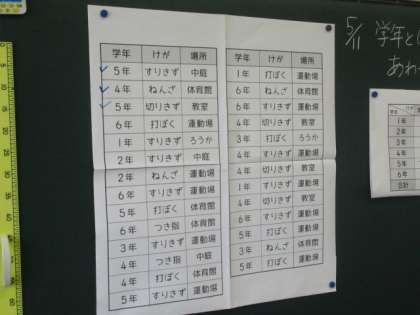 学年 けが 場所
5年 すりきず 中庭
4年 ねんざ 体育館
5年 切りきず 教室
6年 打ぼく 運動場
1年 すりきず ろうか
2年 すりきず 中庭
2年 ねんざ 運動場
6年 すりきず 運動場
5年 打ぼく 体育館
6年 つき指 体育館
3年 すりきず 運動場
4年 つき指 中庭
4年 打ぼく 体育館
5年 すりきず 運動場
学年 けが 場所
1年 打ぼく 運動場
6年 ねんざ 体育館
6年 すりきず 運動場
4年 切りきず 教室
3年 打ぼく ろうか
4年 すりきず 運動場
4年 切りきず 教室
1年 すりきず 運動場
4年 切りきず 教室
6年 すりきず 運動場
5年 打ぼく 運動場
3年 ねんざ 体育館
5年 打ぼく 運動場
5/11 学年と
あわ
1年
2年
3年
4年
5年
6年
合計